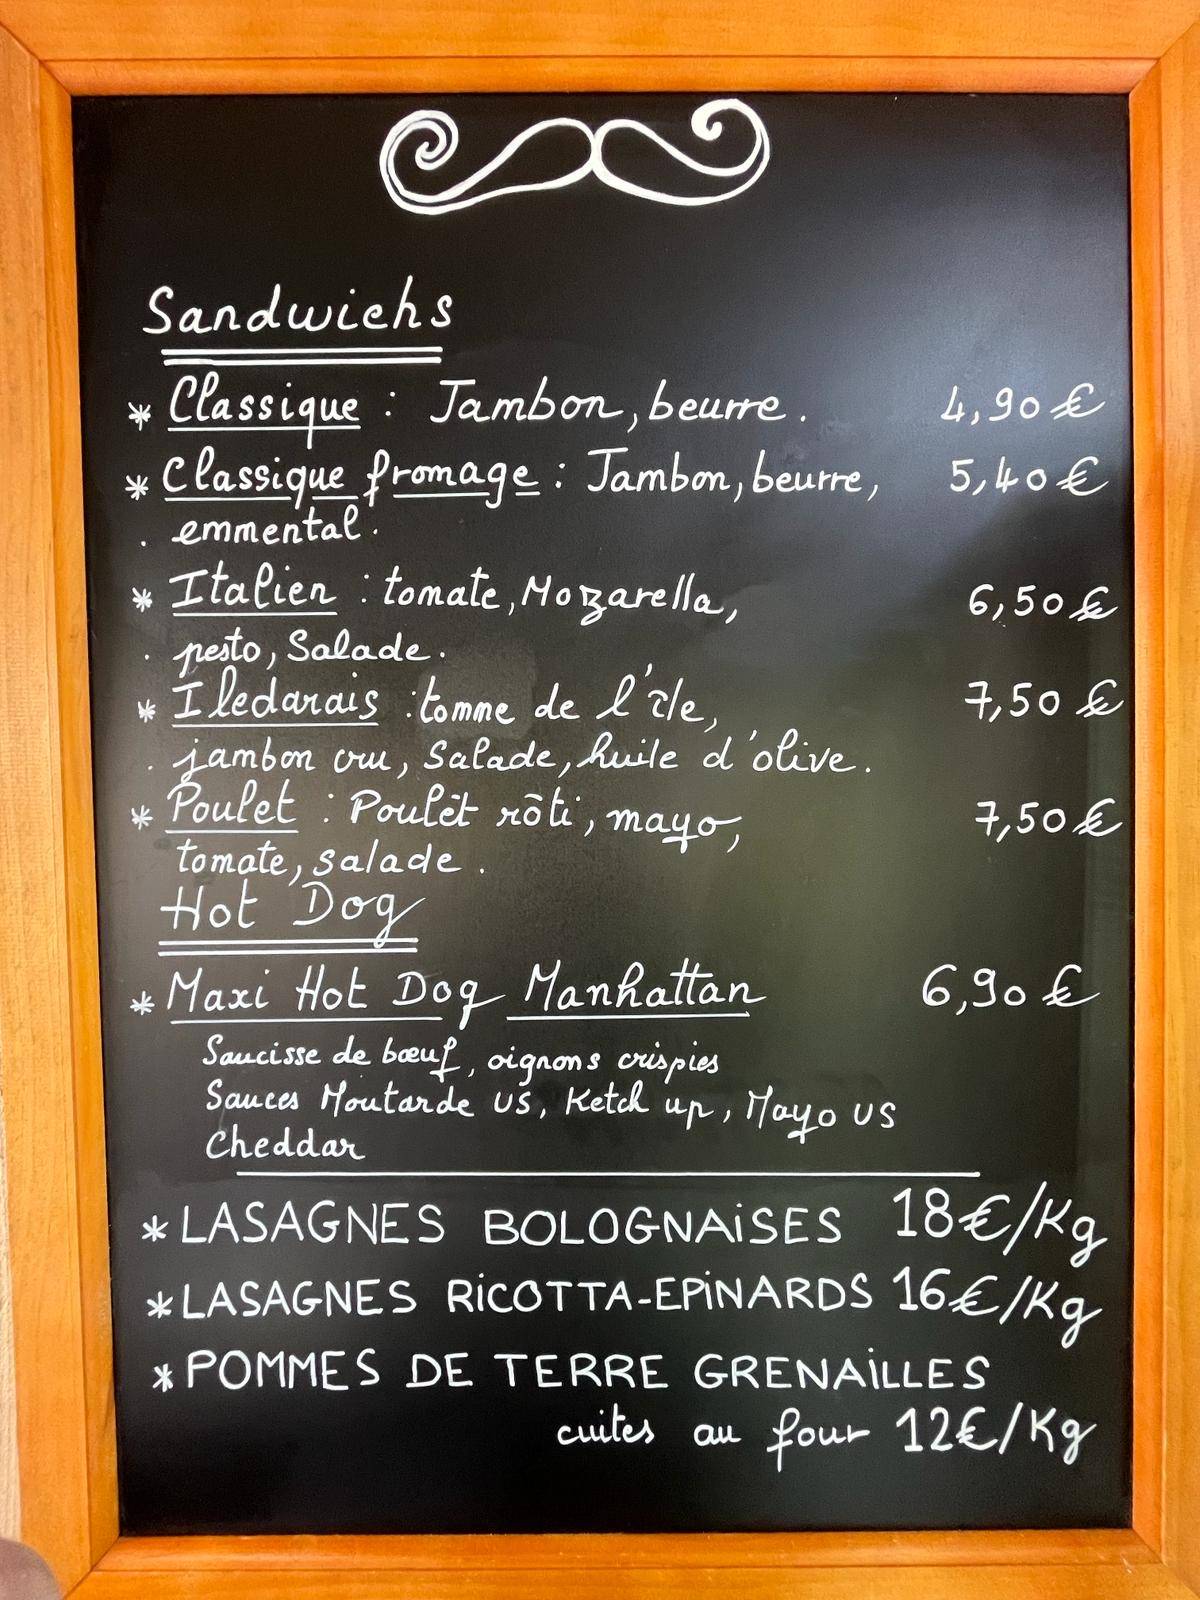 Sandwichs
* Classique : Jambon, beurre. 4,90 €
* Classique fromage : Jambon, beurre, 5,40 €
. emmental.
* Italien : tomate, Mozarella, 6,50 €
. pesto, Salade.
* Iledarais : tomme de l'île, 7,50 €
. jambon cru, Salade, huile d'olive.
* Poulet : Poulet rôti, mayo, 7,50 €
tomate, salade.
Hot Dog
* Maxi Hot Dog Manhattan 6,90 €
Saucisse de bœuf, oignons crispies
Sauces Moutarde US, Ketch up, Mayo US
Cheddar
* LASAGNES BOLOGNAiSES 18€/Kg
* LASAGNES RiCOTTA-EPiNARDS 16€/Kg
* POMMES DE TERRE GRENAiLLES
cuites au four 12€/Kg